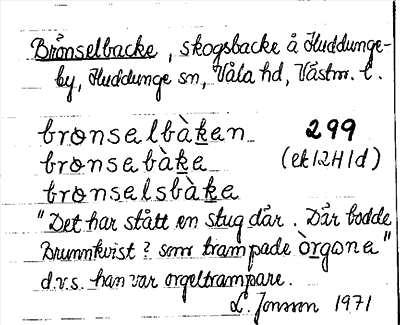 Brånselbacke, skogsbacke å Huddunge-
by, Huddunge sn, Våla hd, Västm. l.
brɵnselbàken 299
brɵnsebàke (ek 12H1d)
brɵnselsbàke
"Det har stått en stug där. Där bodde
Brunnkvist? som trampade òrgɷna"
d.v.s. han var orgeltrampare.
L. Jonsson 1971